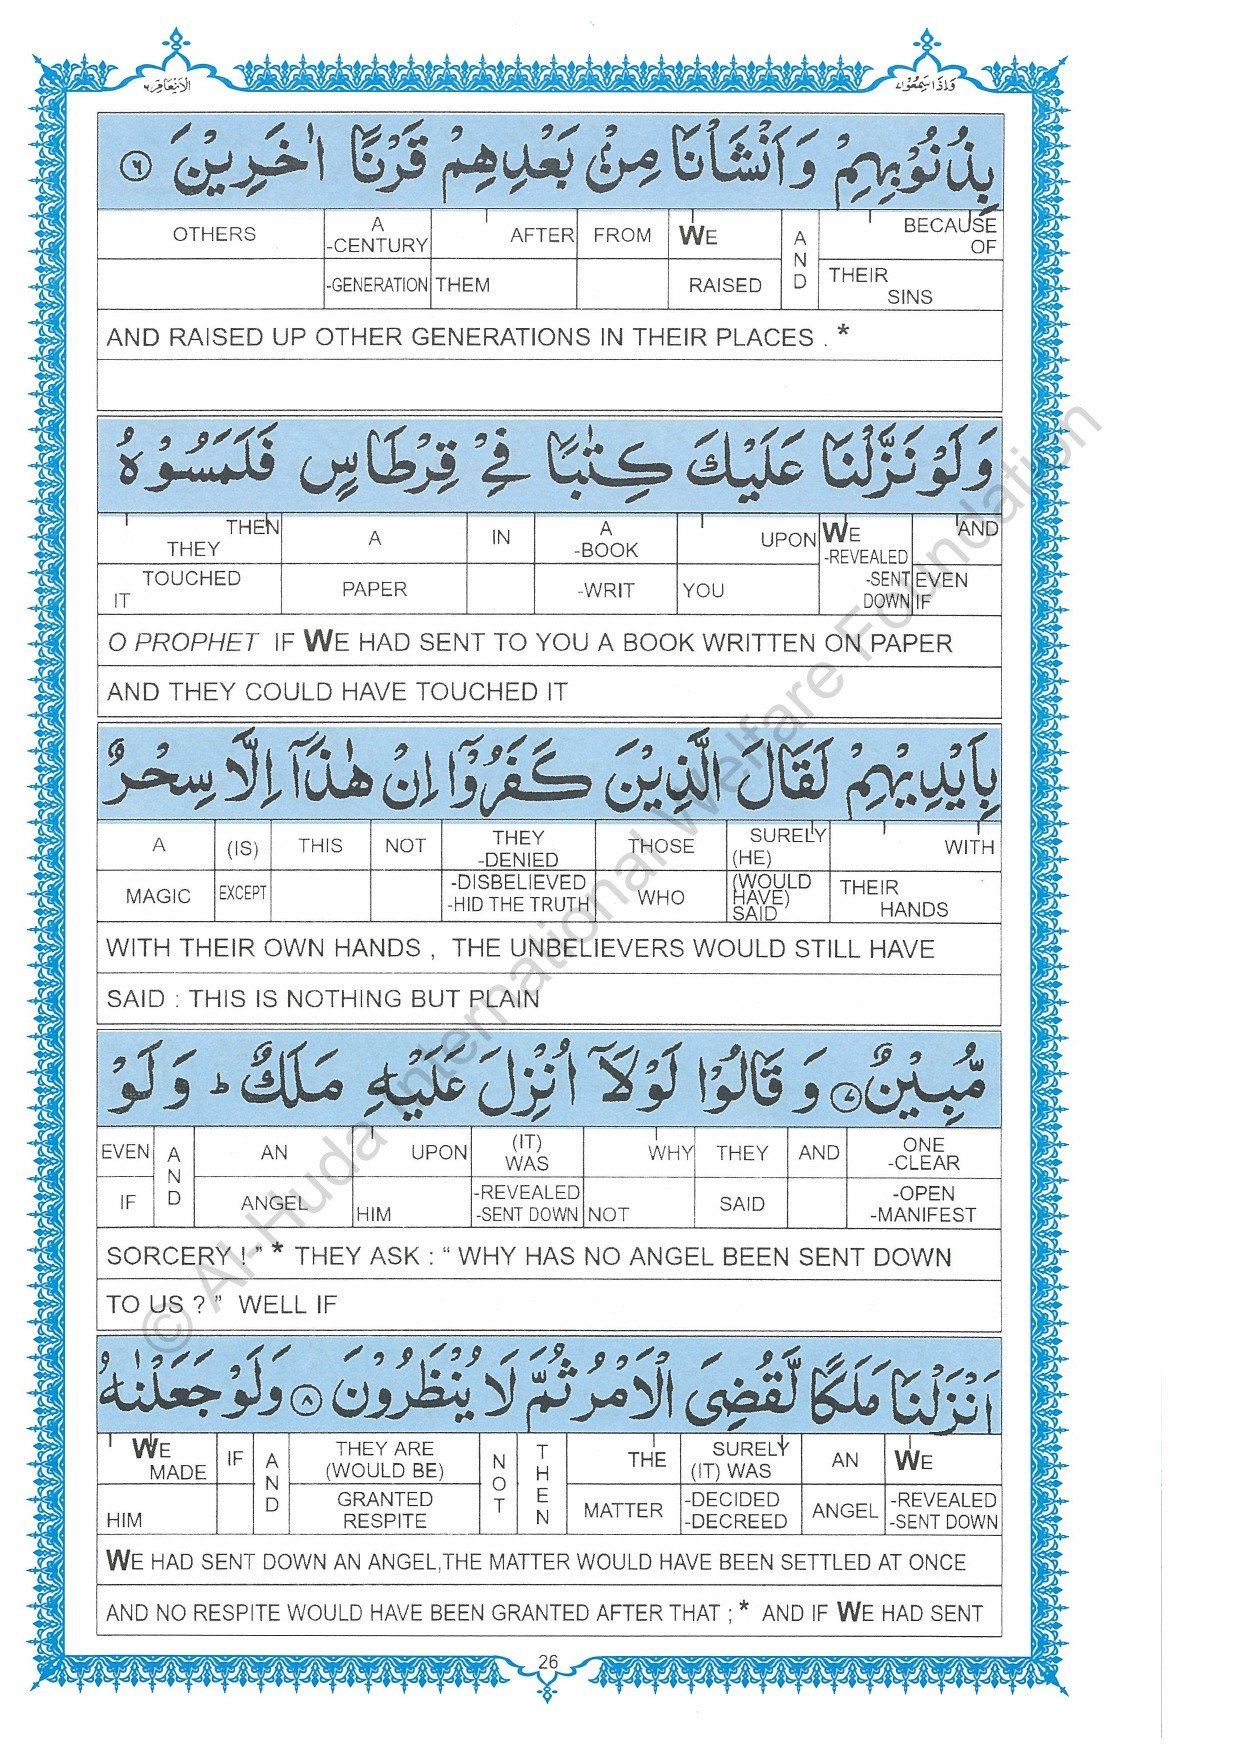 الانعام ٦
واذا سمعوا ٧
بِذُنُوْبِهِمْ وَاَنْشَاْنَا مِنْۢ بَعْدِهِمْ قَرْنًا اٰخَرِيْنَ ٦
OTHERS A -CENTURY AFTER FROM WE AND BECAUSE OF
-GENERATION THEM RAISED THEIR SINS
AND RAISED UP OTHER GENERATIONS IN THEIR PLACES . *
وَلَوْ نَزَّلْنَا عَلَيْكَ كِتٰبًا فِيْ قِرْطَاسٍ فَلَمَسُوْهُ
THEN THEY A IN A -BOOK UPON WE -REVEALED AND
TOUCHED IT PAPER -WRIT YOU -SENT DOWN EVEN IF
O PROPHET IF WE HAD SENT TO YOU A BOOK WRITTEN ON PAPER
AND THEY COULD HAVE TOUCHED IT
بِاَيْدِيْهِمْ لَقَالَ الَّذِيْنَ كَفَرُوْٓا اِنْ هٰذَآ اِلَّا سِحْرٌ
A (IS) THIS NOT THEY -DENIED THOSE SURELY (HE) WITH
MAGIC EXCEPT -DISBELIEVED -HID THE TRUTH WHO (WOULD HAVE) SAID THEIR HANDS
WITH THEIR OWN HANDS , THE UNBELIEVERS WOULD STILL HAVE
SAID : THIS IS NOTHING BUT PLAIN
مُّبِيْنٌ ٧ وَقَالُوْا لَوْلَآ اُنْزِلَ عَلَيْهِ مَلَكٌ ؕ وَلَوْ
EVEN AND AN UPON (IT) WAS WHY THEY AND ONE -CLEAR
IF ANGEL HIM -REVEALED -SENT DOWN NOT SAID -OPEN -MANIFEST
SORCERY ! ” * THEY ASK : “ WHY HAS NO ANGEL BEEN SENT DOWN
TO US ? ” WELL IF
اَنْزَلْنَا مَلَكًا لَّقُضِيَ الْاَمْرُ ثُمَّ لَا يُنْظَرُوْنَ ٨ وَلَوْ جَعَلْنٰهُ
WE MADE IF AND THEY ARE (WOULD BE) NOT THEN THE SURELY (IT) WAS AN WE
HIM GRANTED RESPITE MATTER -DECIDED -DECREED ANGEL -REVEALED -SENT DOWN
WE HAD SENT DOWN AN ANGEL,THE MATTER WOULD HAVE BEEN SETTLED AT ONCE
AND NO RESPITE WOULD HAVE BEEN GRANTED AFTER THAT ; * AND IF WE HAD SENT
26
© Al-Huda International Welfare Foundation